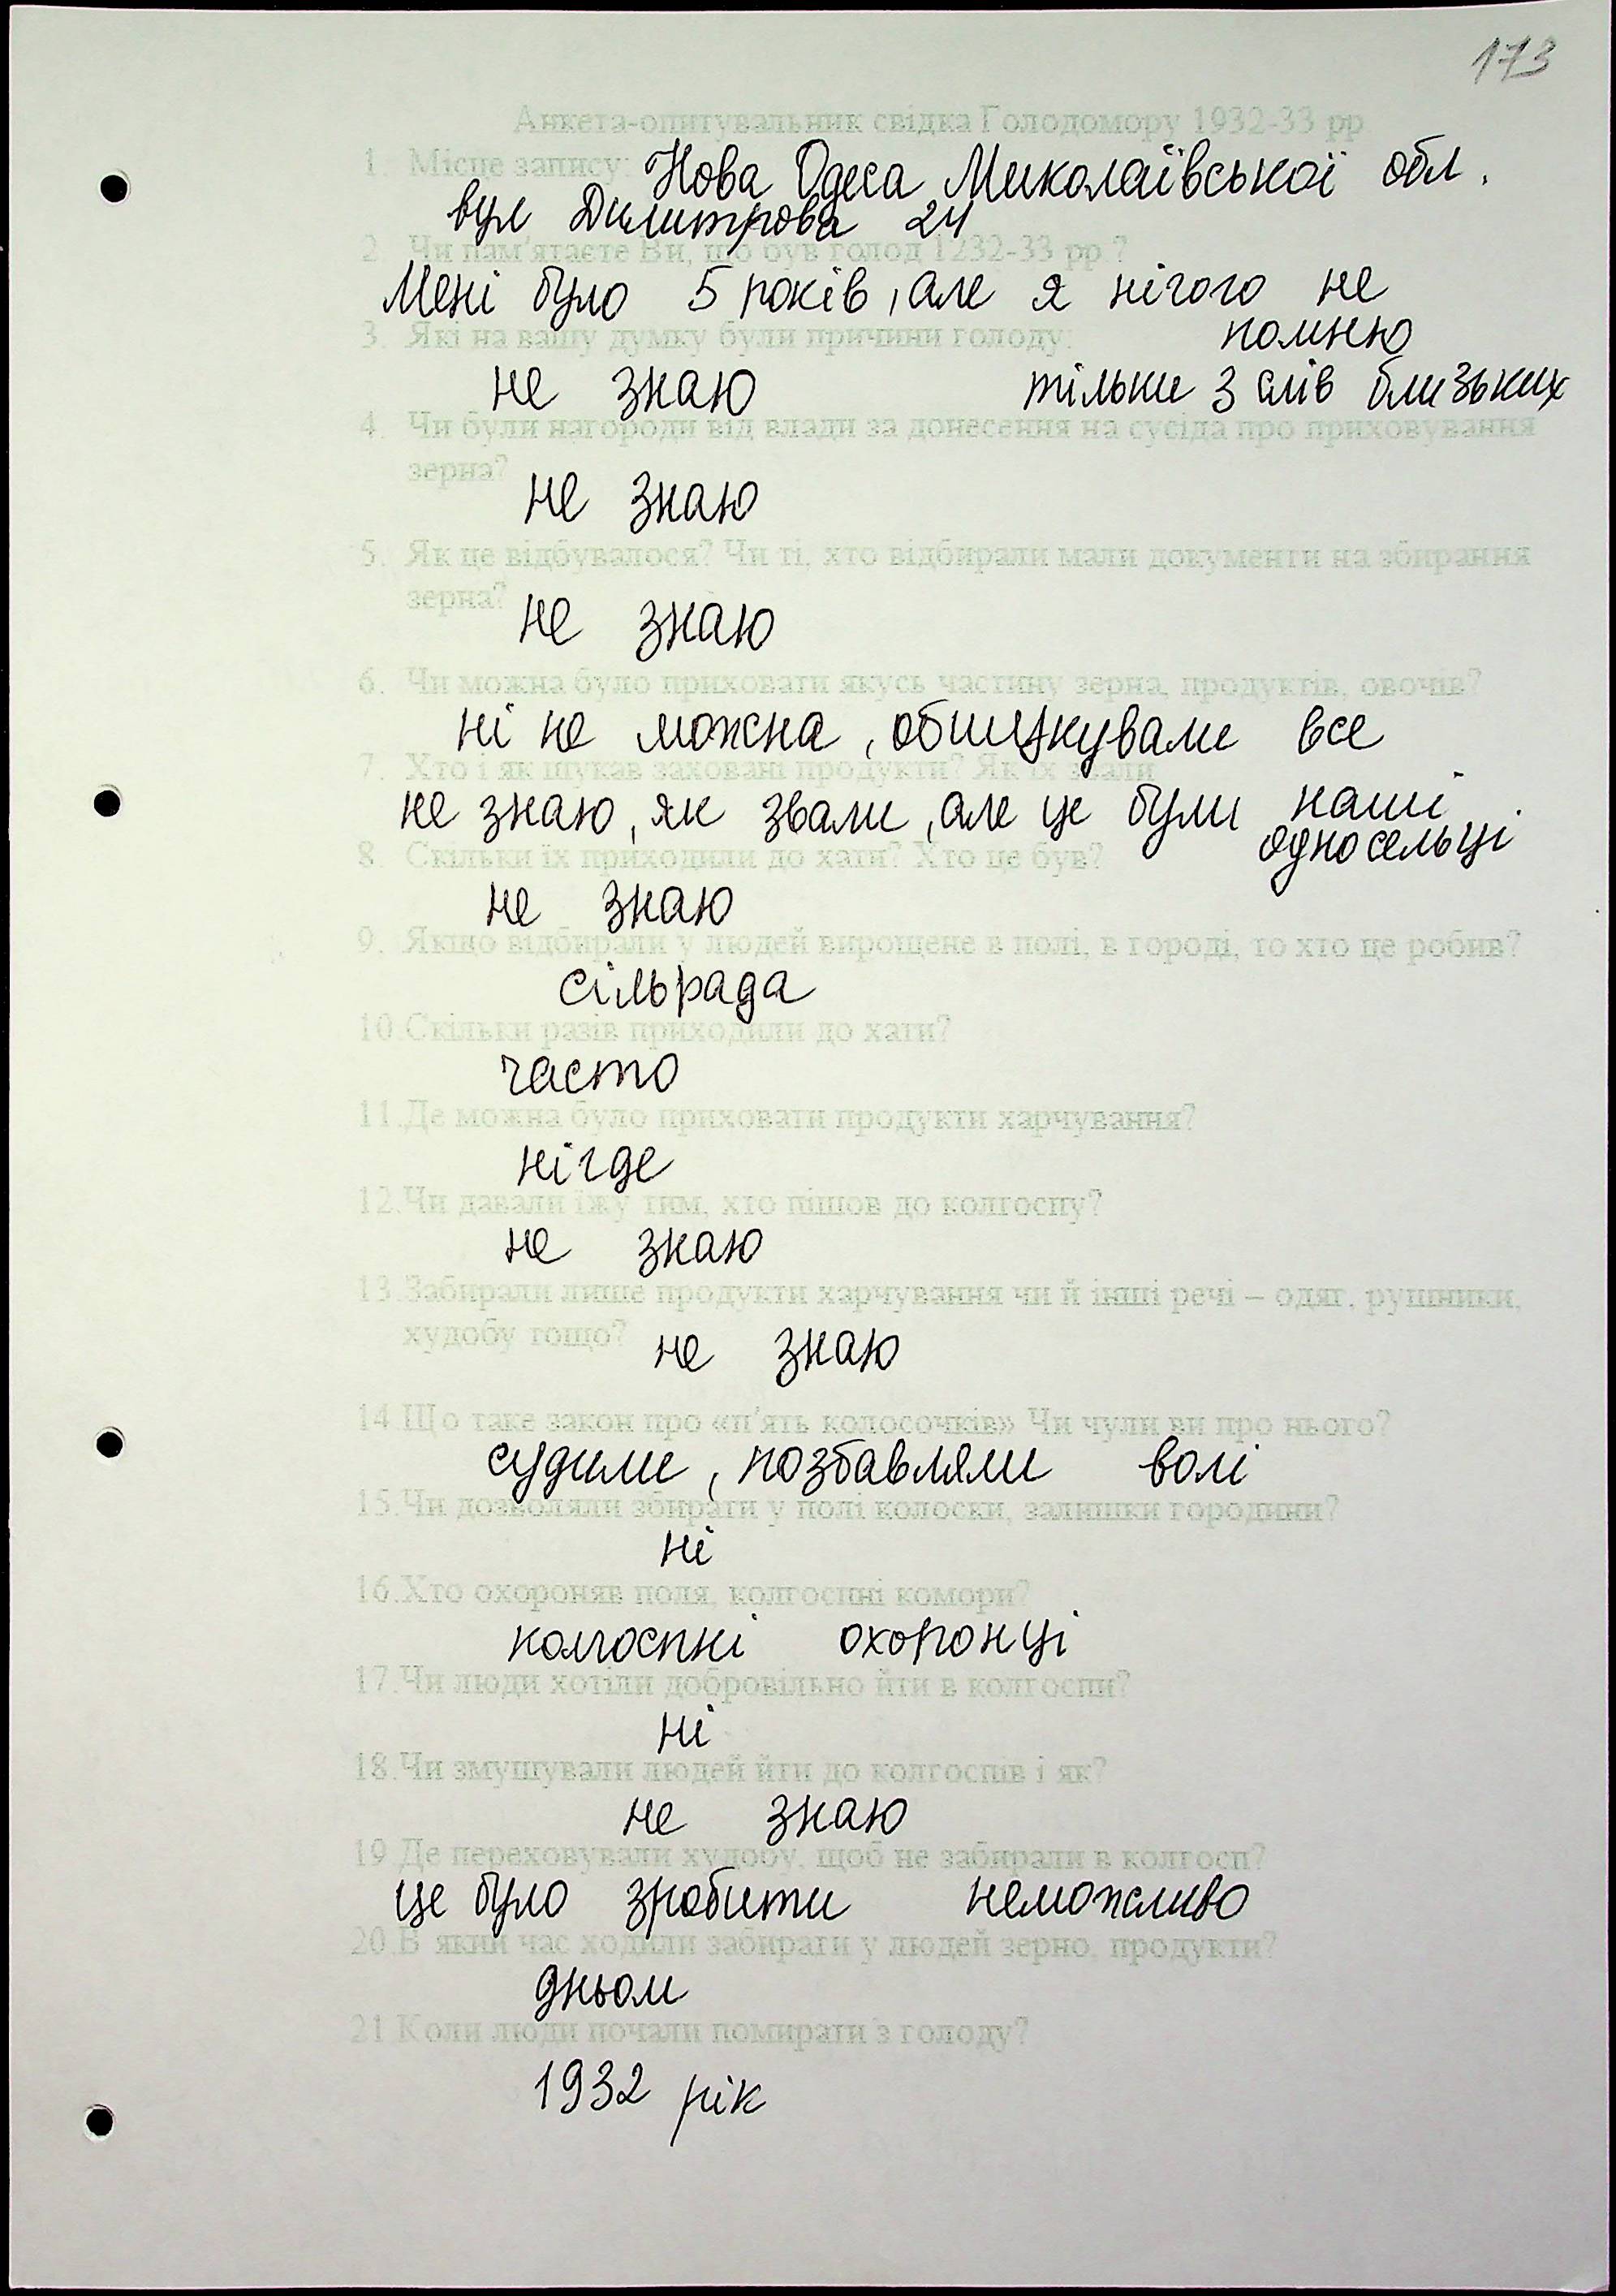 173
Анкета-опитувальник свідка Голодомору 1932-33 рр
1. Місце запису: Нова Одеса Миколаївської обл.
вул Димитрова 24
2. Чи пам'ятаєте Ви, що був голод 1232-33 рр.?
Мені було 5 років, але я нічого не
помню
3. Які на вашу думку були причини голоду:
не знаю тільки з слів близьких
4. Чи були нагороди від влади за донесення на сусіда про приховування
зерна?
не знаю
5. Як це відбувалося? Чи ті, хто відбирали мали документи на збирання
зерна?
не знаю
6. Чи можна було приховати якусь частину зерна, продуктів, овочів?
ні не можна, обшукували все
7. Хто і як шукав заховані продукти? Як їх звали
не знаю, як звали, але це були наші
односельці
8. Скільки їх приходили до хати? Хто це був?
не знаю
9. Якщо відбирали у людей вирощене в полі, в городі, то хто це робив?
сільрада
10.Скільки разів приходили до хати?
часто
11.Де можна було приховати продукти харчування?
нігде
12.Чи давали їжу тим, хто пішов до колгоспу?
не знаю
13.Забирали лише продукти харчування чи й інші речі – одяг, рушники,
худобу тощо?
не знаю
14.Що таке закон про «п'ять колосочків» Чи чули ви про нього?
судили, позбавляли волі
15.Чи дозволяли збирати у полі колоски, залишки городини?
ні
16.Хто охороняв поля, колгоспні комори?
колгоспні охоронці
17.Чи люди хотіли добровільно йти в колгоспи?
ні
18.Чи змушували людей йти до колгоспів і як?
не знаю
19.Де переховували худобу, щоб не забирали в колгосп?
це було зробити неможливо
20.В який час ходили забирати у людей зерно, продукти?
дньом
21.Коли люди почали помирати з голоду?
1932 рік